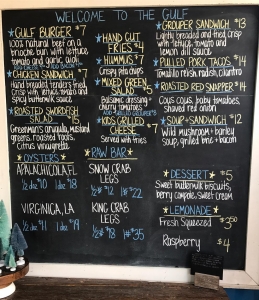 WELCOME TO THE GULF
GULF BURGER $7
100% natural beef on a
brioche bun with lettuce,
tomato and garlic aioli
CHICKEN SANDWICH $7
Hand breaded tenders fried
Crisp with lettuce, tomato and
spicy buttermilk sauce
ROASTED SWORDFISH
SALAD
Greenman's arugula, mustard
greens, roasted roots,
Citrus vinaigrette
OYSTERS
APALACHICOLA, FL
1/2 doz $10 1 doz $18
VIRGINICA, LA
1/2 doz $11 1 doz $19
HAND CUT
FRIES $4
HUMMUS $7
Crispy pita chips
MIXED GREEN
SALAD $5
Balsamic dressing
cherry tomatoes
KIDS GRILLED
CHEESE $7
Served with fries
RAW BAR
SNOW CRAB
LEGS
1/2 lb $12 1 lb $22
KING CRAB
LEGS
1/2 lb $18 1 lb $35
GROUPER SANDWICH $13
Lightly breaded and fried crisp
with lettuce, tomato and
lemon dill sauce
PULLED PORK TACOS $14
Tomatillo relish, radish, cilantro
ROASTED RED SNAPPER $14
Cous cous, baby tomatoes,
shaved red onion
SOUP + SANDWICH $12
Wild mushroom + barley
soup, grilled brie + bacon
DESSERT $5
Sweet buttermilk biscuits,
berry compote, sweet cream
LEMONADE
Fresh Squeezed $3.50
Raspberry $4